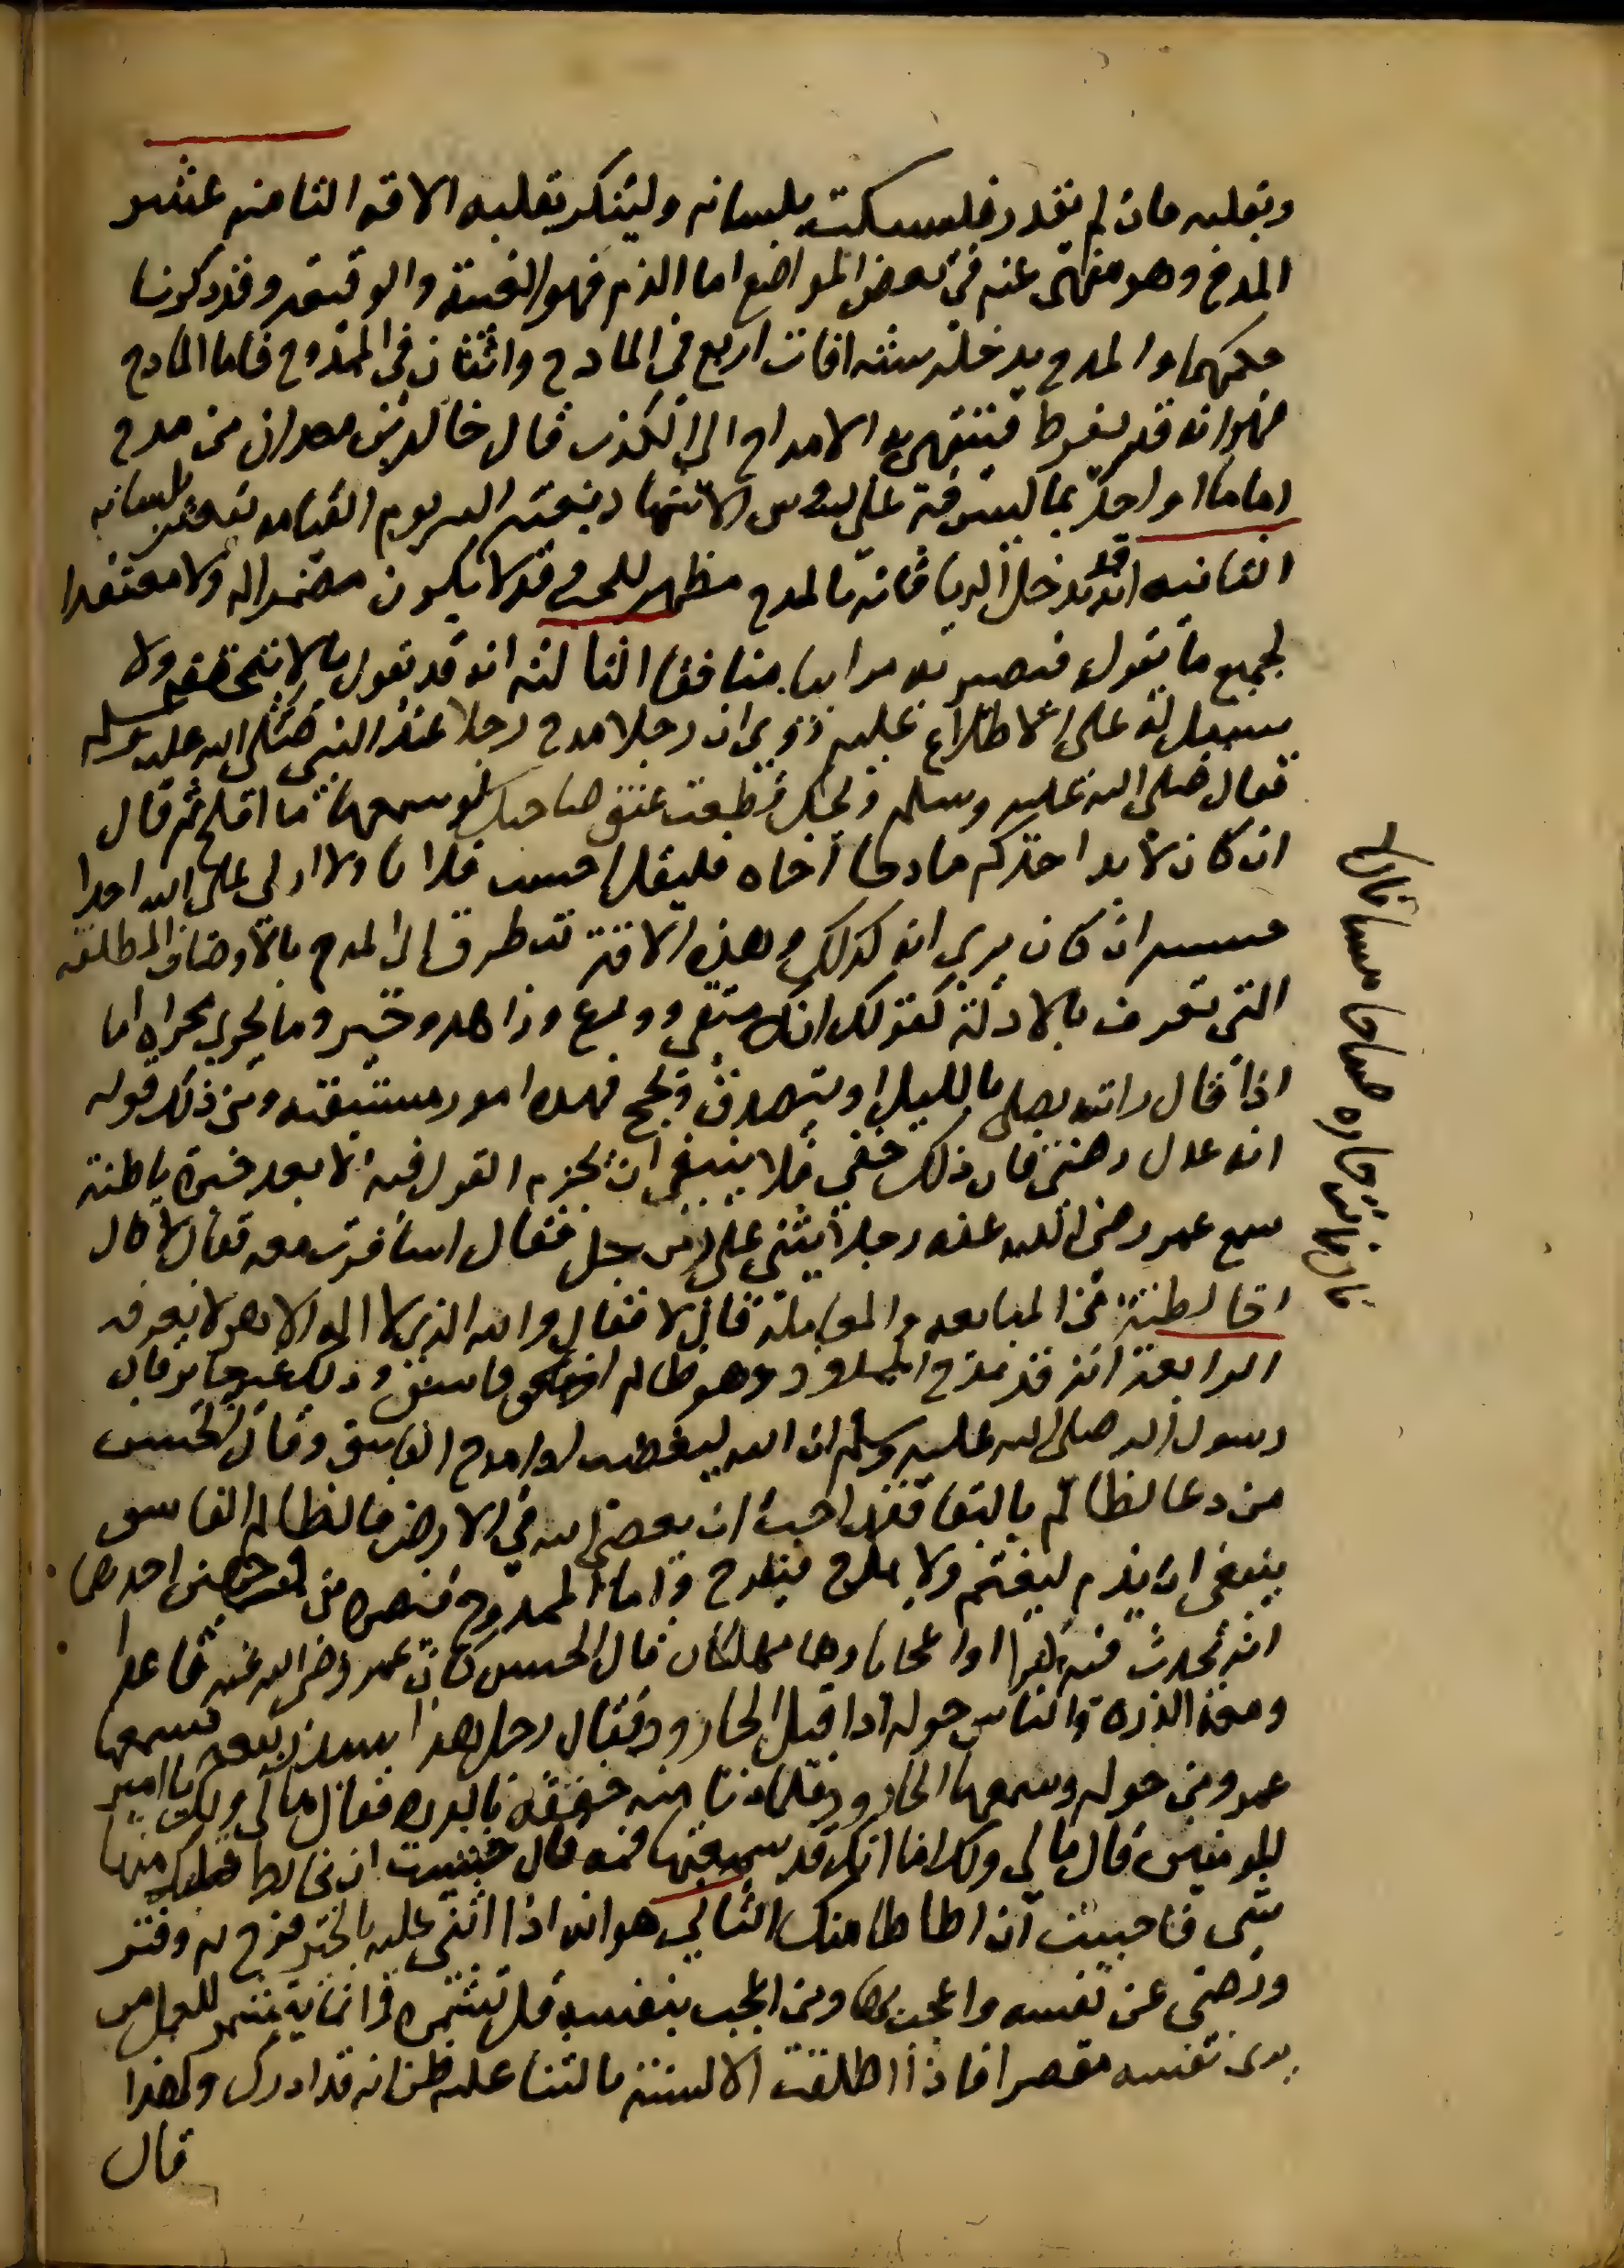 وبقلبه فان لم يقدر فليسكت بلسانه ولينكر بقلبه الافة الثامنة عشر
المدح وهو منهي عنه في بعض المواضع اما الذم فهو الغيبة والوقيعة وقد ذكرنا
حكمهما والمدح يدخله ستة افات اربع في المادح واثنتان في الممدوح فاما المادح
فهو انه قد يفرط فينتهي به الامداح الى الكذب قال خالد بن معدان من مدح
اماما او احدا بما ليس فيه على رؤس الاشهاد بعثه الله يوم القيامة يتعثر بلسانه
الثانية انه قد يدخل الريا فانه بالمدح مظهر للحب وقد لا يكون مضمرا له ولا معتقدا
لجميع ما يقول فيصير به مرايا منافقا الثالثة انه قد يقول ما لا يتحققه ولا
سبيل له على الاطلاع عليه روي ان رجلا مدح رجلا عند النبي صلى الله عليه وسلم
فقال صلى الله عليه وسلم ويحك قطعت عنق صاحبك لو سمعها ما افلح ثم قال
ان كان لا بد احدكم مادحا اخاه فليقل احسب فلانا ولا ازكي على الله احدا
حسيبه ان كان يرى انه كذلك وهذه الافة تتطرق الى المدح بالاوصاف المطلقة
التي تعرف بالادلة كقولك انك متقي وورع وزاهد وخير وما يجري مجراه اما
اذا قال رايته يصلي بالليل او يتصدق ويحج فهذه امور مستيقنه ومن ذلك قوله
انه عدل رضى فان ذلك خفي فلا ينبغي ان يجزم القول فيه الا بعد خبرة باطنة
سمع عمر رضي الله عنه رجلا يثني على رجل فقال اسافرت معه فقال لا قال
اخالطته في المبايعه والمعاملة قال لا فقال والله الذي لا اله الا هو لا تعرفه
الرابعة انه قد يفرح الممدوح وهو ظالم او فاسق وذلك غير جايز قال
رسول الله صلى الله عليه وسلم ان الله ليغضب اذا مدح الفاسق وقال الحسن
من دعا لظالم بالبقا فقد احب ان يعصى الله في الارض فالظالم الفاسق
ينبغي ان يذم ليغتم ولا يمدح فيفرح واما الممدوح فيضره من وجهين احدهما
انه يحدث فيه كبرا او اعجابا وهما مهلكان قال الحسن كان عمر رضي الله عنه قاعدا
ومعه الدرة والناس حوله اذ اقبل الجارود فقال رجل هذا سيد ربيعة فسمعها
عمر ومن حوله وسمعها الجارود فلما دنا منه خفقه بالدرة فقال مالي ولك يا امير
المومنين قال مالي ولك اما انك قد سمعتها فمه قال خشيت ان يخالط قلبك منها
شي فاحببت ان اطاطا منك الثاني هو انه اذا اثنى عليه بالخير فرح به وفتر
ورضي عن نفسه واعجب بها ومن اعجب بنفسه قل تشمره وانما يتشمر للعمل من
يرى نفسه مقصرا فاذا اطلقت الالسنة بالثنا عليه ظن انه قد ادرك ولهذا
قال